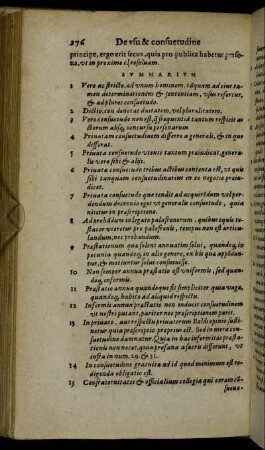 276 De vsu & consuetudine
principe, ergo erit secus, quia pro publica habetur perso-
na, vt in proximo resoluam.
SVMMARIVM
1 Vero ac stricto, ad vnum hominem, tanquam ad eius ta-
men determinationem & sententiam, vsus refertur,
& ad plures consuetudo.
2 Dictio, con denotat duitatem, vel pluralitatem.
3 Vero consuetudo non est, si frequentia tantum respicit ac-
torum absq; concursu personarum.
4 Priuatam consuetudinem differre a generali, & in quo
differat.
5 Priuata consuetudo vtenti tantum praiudicat, generalis
vero sibi & alijs.
6 Priuata consuetudo etiam actione contenta est, vt quis
sibi tanquam consuetudinarius in eo negotio praeiu-
dicet.
7 Priuata consuetudo quae tendit ad acquirendum vel per-
dendum decennio eget vt generalis consuetudo, quia
nititur in praescriptione.
8 Ad probandum collegato palafrenorum, quibus equis te-
stator vteretur pro palafrenis, tempus non est articu-
landum, nec probandum.
9 Praestationem qua solent annuatim solui, quandoq; in
pecunia quandoq; in alio genere, ex his quae appendun-
tur, & metiuntur solui consistuta.
10 Non semper annua praestatio est vniformis, sed quan-
doq; informis.
11 Praestatio annua quandoque fit simpliciter quia vaga,
quandoq; habito ad aliquid respectu.
12 Informis annua praestatio non inducit consuetudinem
vt nostri putant, pariter nec praescriptionem parit.
13 In priuato, aut respectu priuatorum Baldus ponit susti-
netur quia praescriptio proprie est. Sed in mera con-
suetudine damnatur. Quia in hac informitas praesta-
tionis non nocet, quia profana a sacris differunt, vt
infra in num. 29. & 31.
14 In consuetudine gratuita ad id quod minimum est re-
digenda obligatio est.
15 Confraternitates & officialium collegia qui ceram ob
sueue-